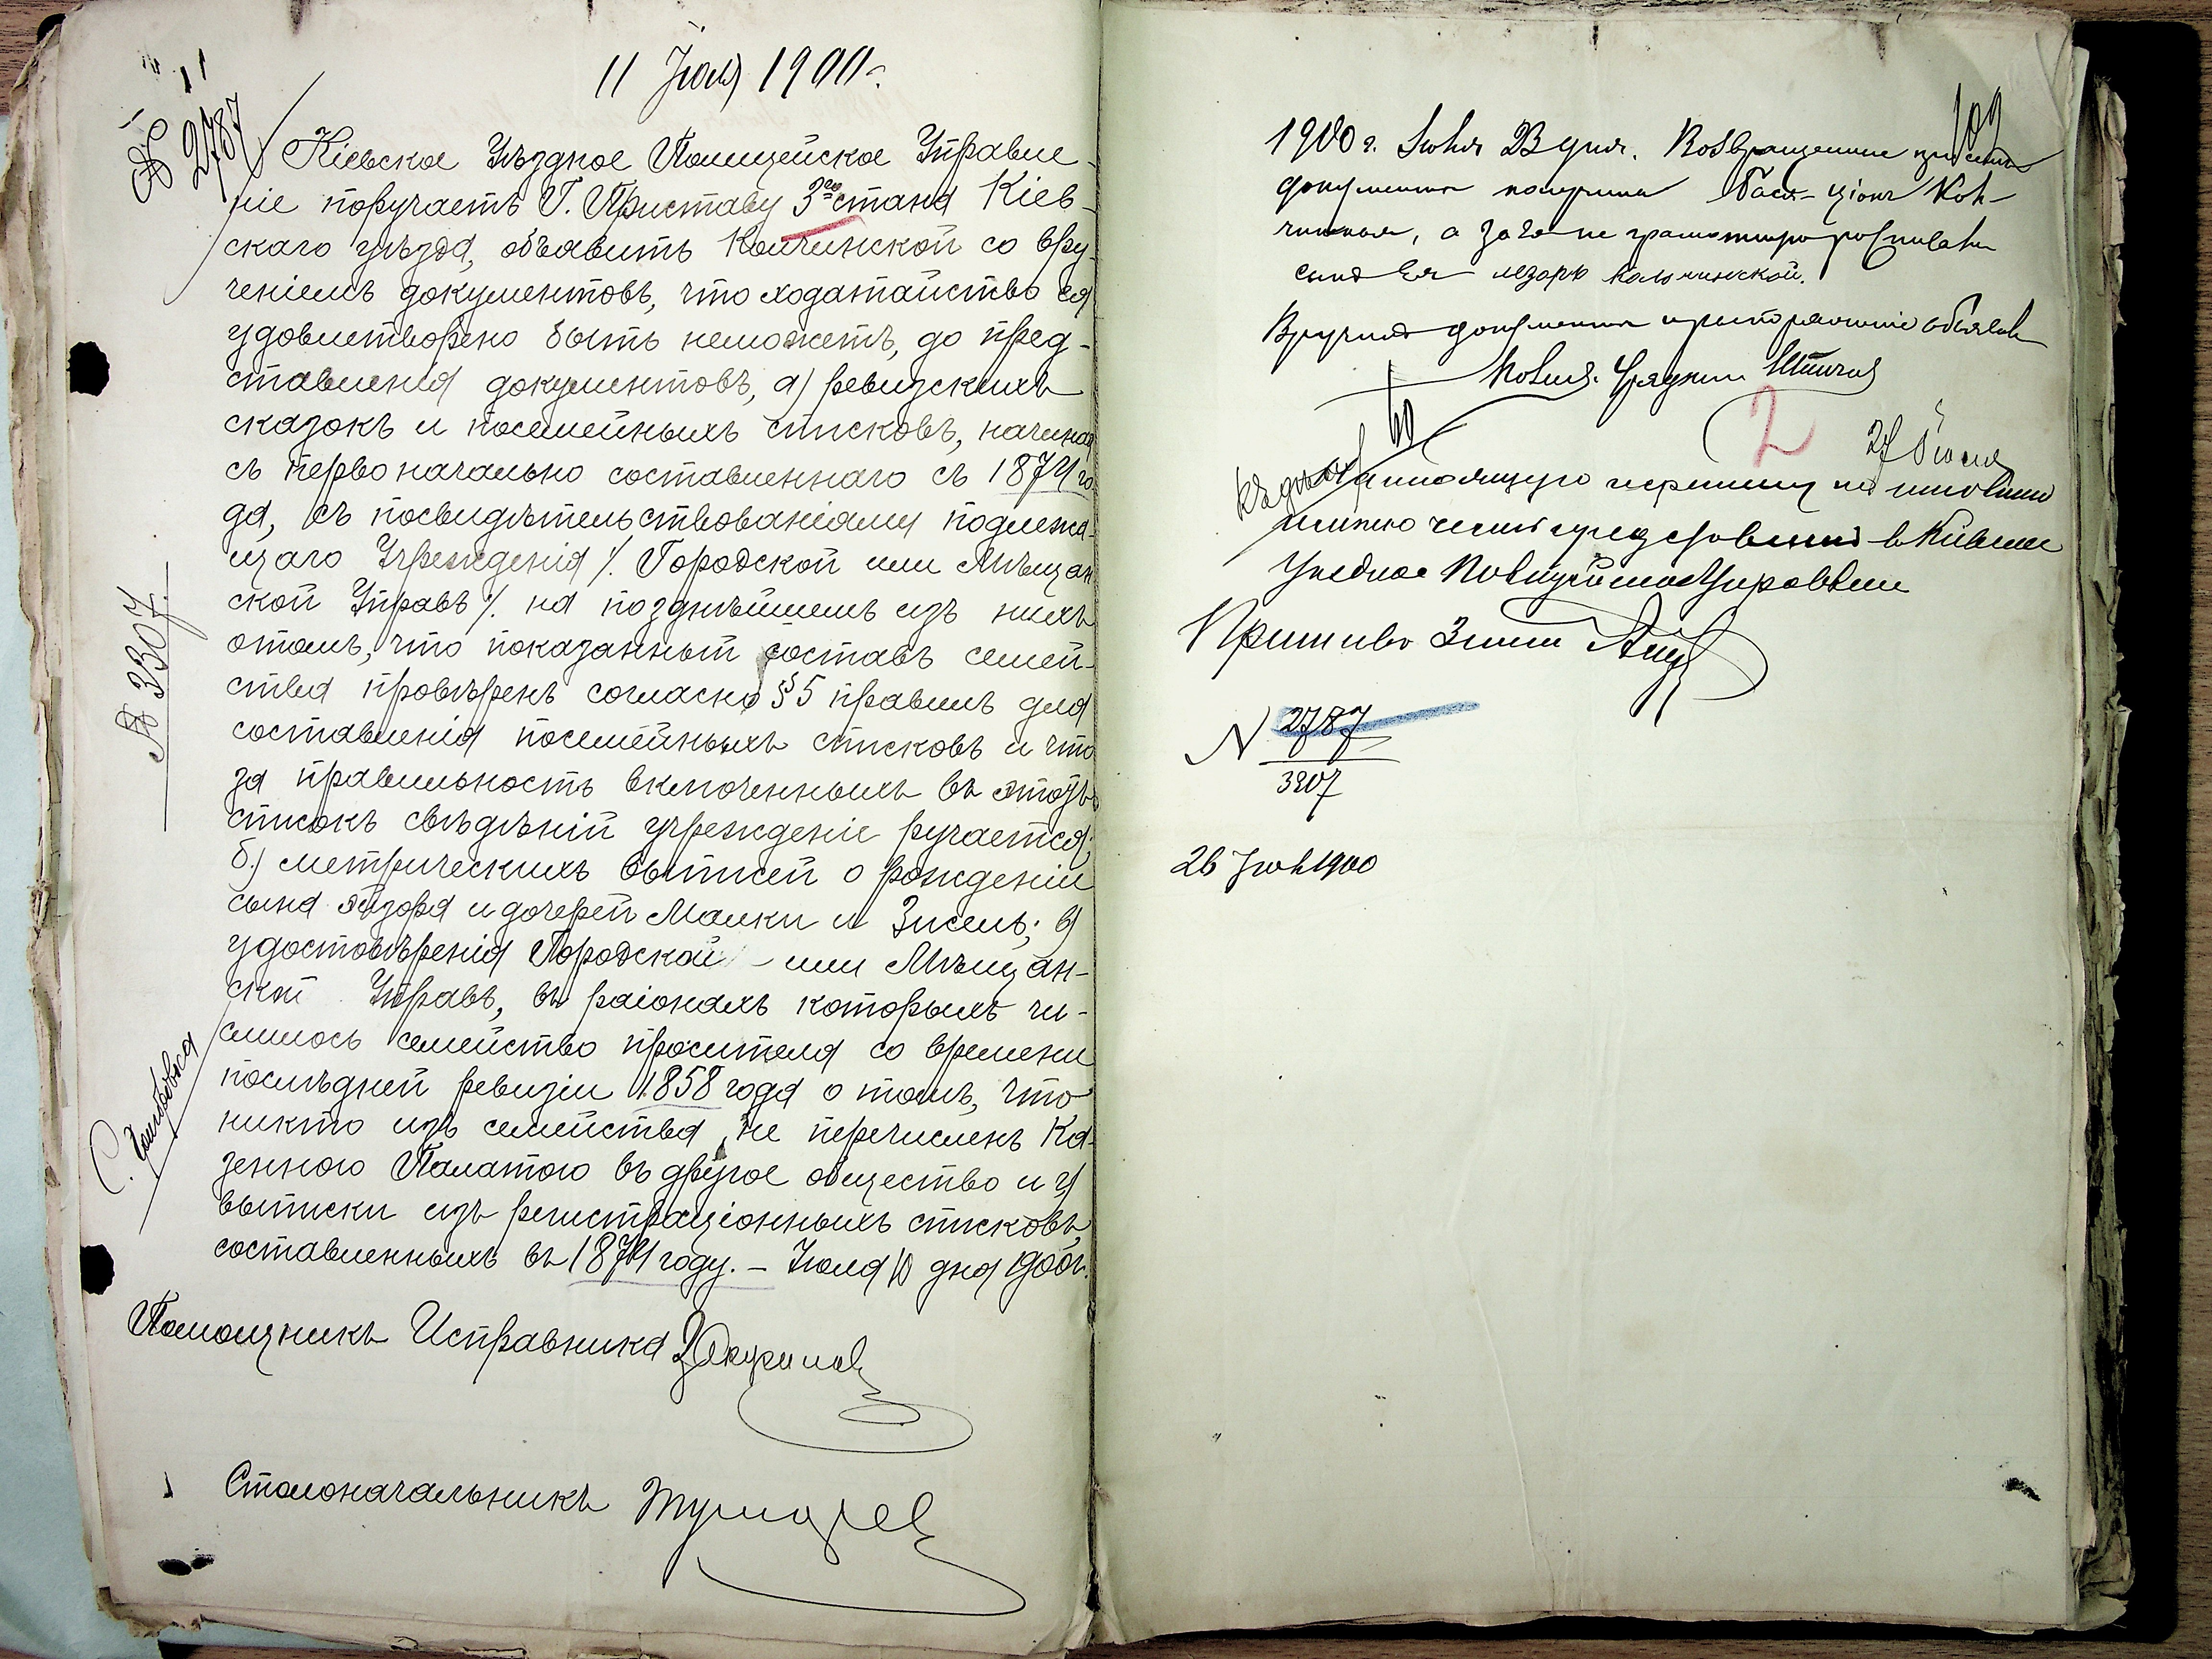 11 Іюля 1900 г.
№ 2787
Кіевское Уѣздное Полицейское Управле-
ніе поручаетъ Г. Приставу 3го стана Кіев-
скаго уѣзда, объявить Кольчинской со вру-
ченіемъ документовъ, что ходатайство ея
удовлетворено быть неможетъ, до пред-
ставленія документовъ, а) ревизскихъ
сказокъ и посемейныхъ списковъ, начиная
съ первоначально составленнаго съ 1874 го-
да, съ посвидѣтельствованіями подлежа-
щаго Учрежденія /. Городской или Мѣщан-
ской Управъ /. на позднѣйшемъ изъ нихъ
отомъ, что показанный составъ семей-
ства провѣренъ согласно § 5 правилъ для
составленія посемейныхъ списковъ и что
за правильность включенныхъ въ этотъ
списокъ свѣдѣній учрежденіе ручается;
б) метрическихъ выписей о рожденіи
сына Лазора и дочерей Малки и Зисель; в)
удостовѣренія Городской - или Мѣщан-
ской Управъ, въ раіонахъ которыхъ чи-
слилось семейство просителя со времени
послѣдней ревизіи 1858 года о томъ, что
никто изъ семейства не перечисленъ Ка-
зенною Палатою въ другое общество и г)
выписки изъ регистраціонныхъ списковъ,
составленныхъ въ 1874 году. - Іюля 10 дня 1900 г.
Помощникъ Исправника
Столоначальникъ
№ 3307
109
1900 г. Іюля 23 дня. Возвращенные при семъ
документы получила Бася-Ціоня Коль-
чинская, а за нея не грамотную росписался
сынъ Ея Лезоръ Кольчинской.
Вручилъ документы и распоряженіе объявилъ
Полиц. Урядникъ
2
27 Іюля
настоящую переписку по исполненіи
имѣю честь представить в Кіевское
Уездное Полицейское Управленіе
Приставъ 3 стана
N 2787
3207
26 Іюля 1900